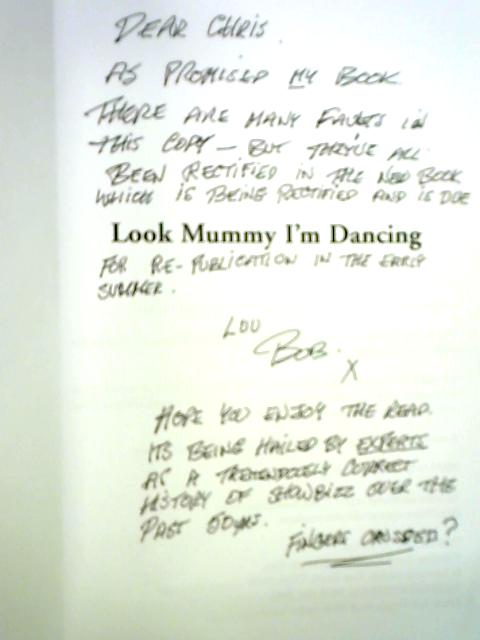 DEAR CHRIS.
AS PROMISED MY BOOK.
THERE ARE MANY FAULTS IN
THIS COPY — BUT THEY'VE ALL
BEEN RECTIFIED IN THE NEW BOOK
WHICH IS BEING RECTIFIED AND IS DUE
Look Mummy I'm Dancing
FOR RE-PUBLICATION IN THE EARLY
SUMMER.
LOU
BOB.
X
HOPE YOU ENJOY THE READ.
ITS BEING HAILED BY EXPERTS
AS A CORRECT
HISTORY OF SHOWBIZZ OVER THE
PAST 50yrs.
FINGERS CROSSED?